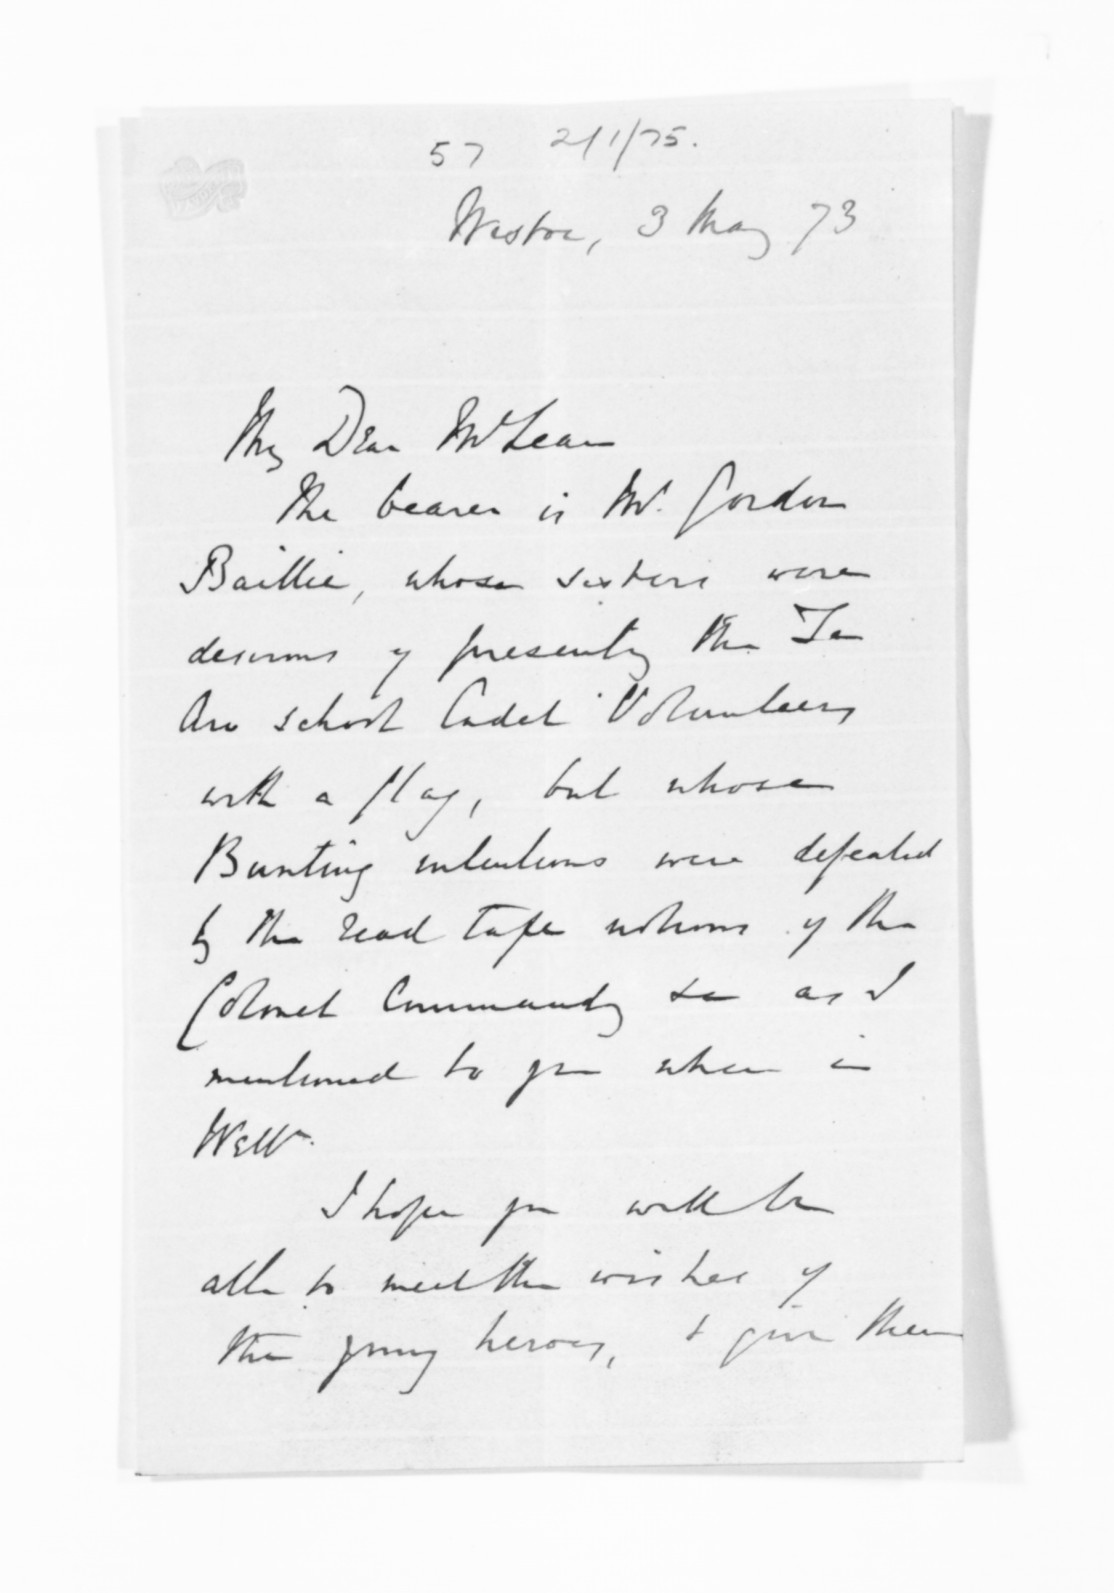 57 2/1/75.
Westoe, 3 May 73
My Dear McLean
The bearer is Mr. Gordon
Baillie, whose sisters were
desirous of presenting the Te
Aro school Cadet Volunteers
with a flag, but whose
Bunting intentions were defeated
by the read tape notions of the
Colonel Commandg &c as I
mentioned to you when in
Welln.
I hope you will be
able to meet the wishes of
the young heroes, & give them